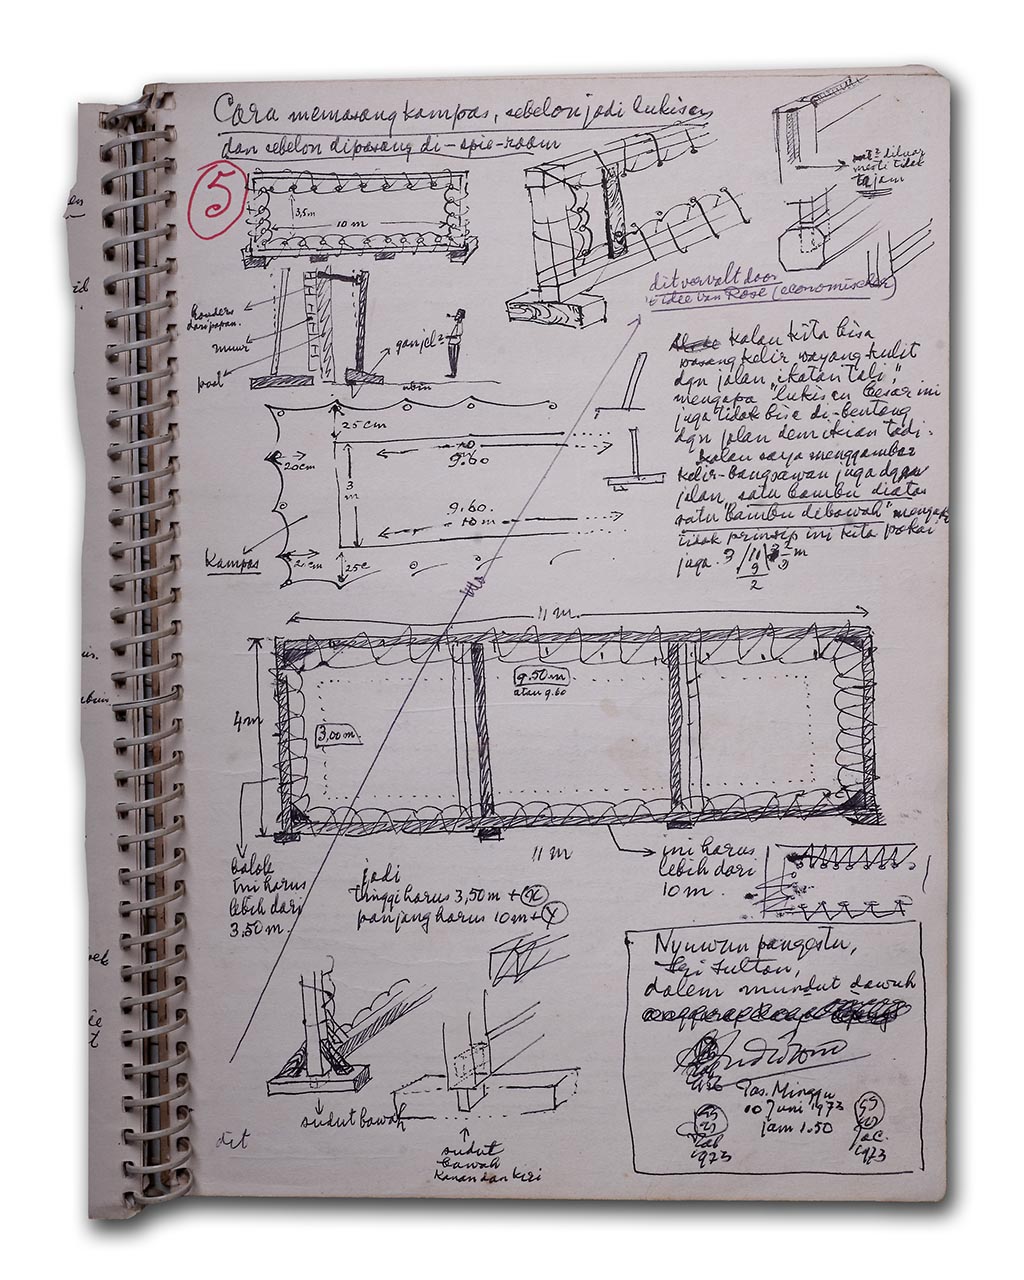 Cara memasang kampas, sebelon jadi lukisan
dan sebelon dipasang di-spie-raam
5
3,5m
10 m
mesti tidak
tajam
dit vervalt door
't idee van Rose (economischer)
houders
dari papan.
muur
past
ganjel2
ubin
kalau kita bisa
wasang kelir wayang kulit
dgn jalan "ikatan tali",
mengapa "lukisan besar ini
juga tidak bisa di-bentang
dgn jalan demikian tadi.
Kalau saya menggambar
kelir-Bangsawan juga dgn
jalan, satu bambu diatas
satu "bambu dibawah" mengapa
tidak prinsip ini kita pakai
juga.
25 cm
20cm
10
9.60
3
m
9.60.
10 m
Kampas
25c
11 m.
9.50 m
atau 9.60
4m
3,00 m.
11 m
ini harus
lebih dari
10 m.
balok
ini harus
lebih dari
3,50 m.
jadi
thinggi harus 3,50 m + X
panjang harus 10 m + Y
Nyuwun pangestu,
Sri Sultan,
dalem mundut dawuh
Tas. Minggu
10 Juni 1973
jam 1.50
1973
1973
sudut bawah
dit
sudut
bawah
Kanan dan Kiri